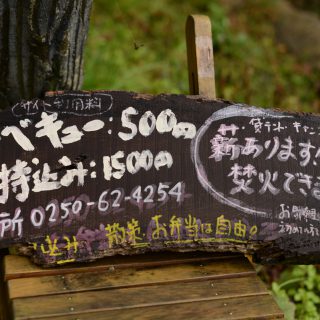 サイト利用料
ベキュー:500円
持込み:1500円
所 0250-62-4254
込み 散策 お弁当は自由。
貸テント・キャン
薪あります!
焚火できま
お気軽